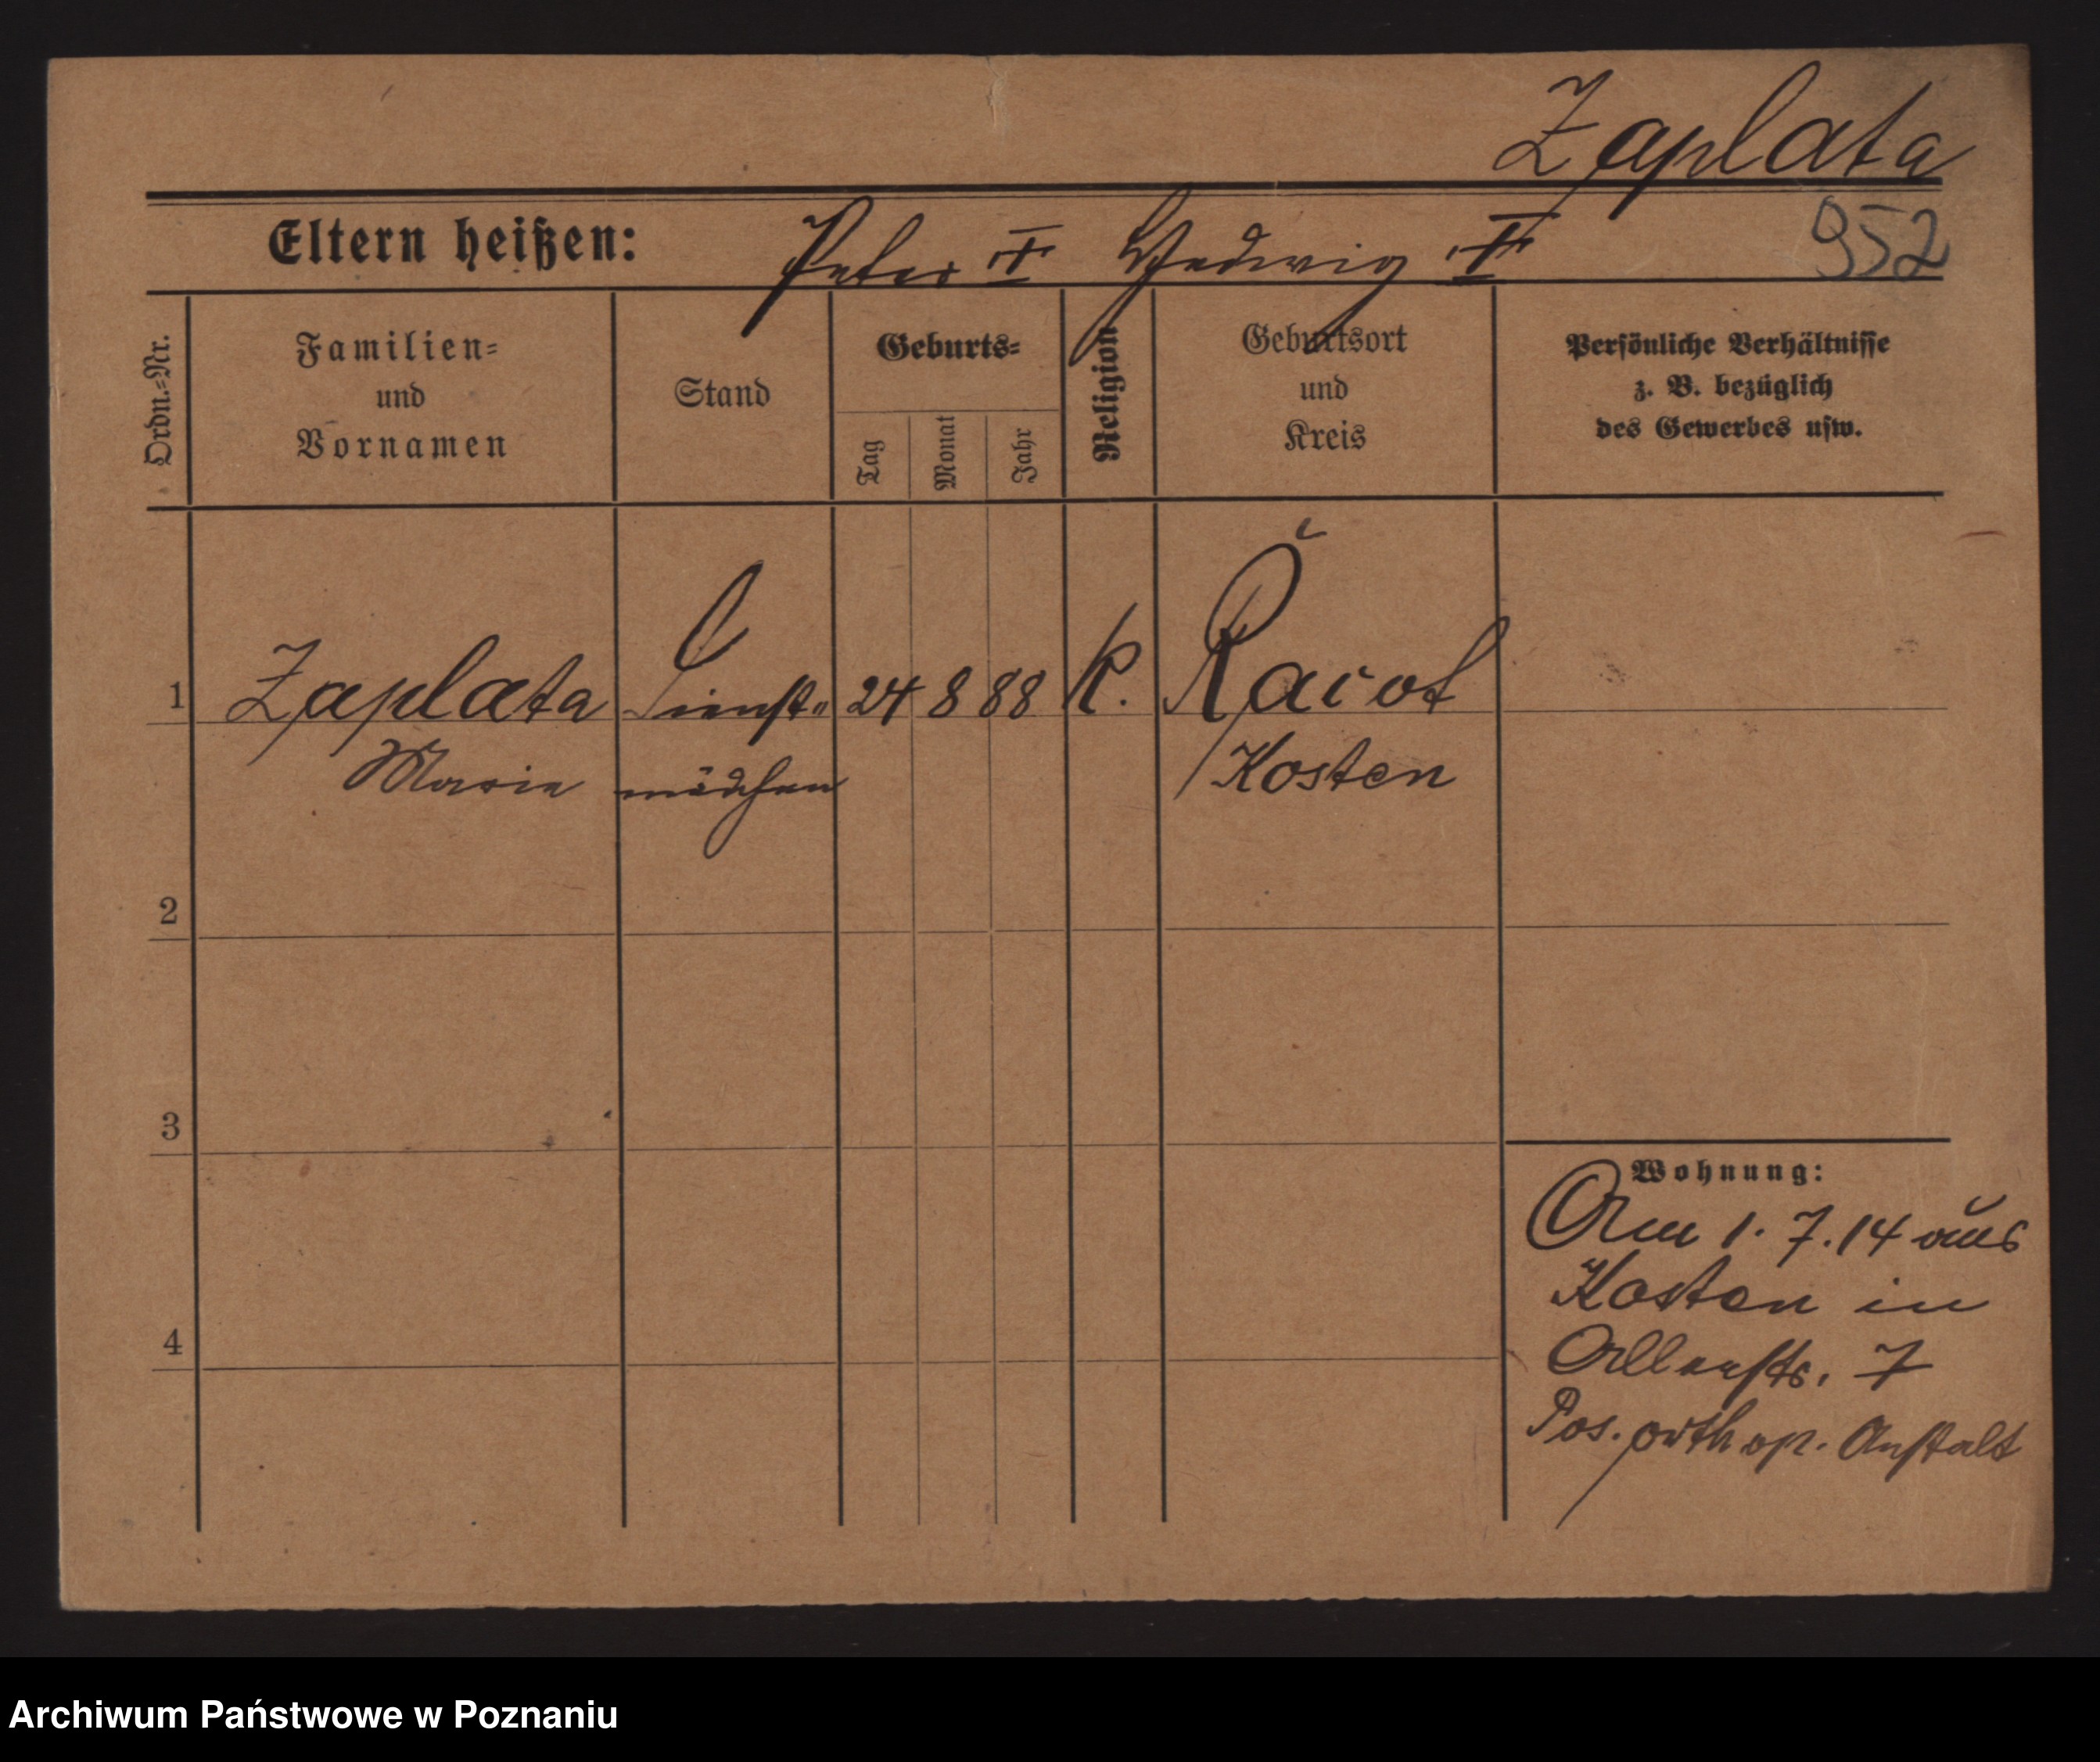 Zaplata
Eltern heißen: Peter † Hedwig †
952
Ordn.-Nr.
Familien-
und
Vornamen
Stand
Geburts-
Tag
Monat
Jahr
Religion
Geburtsort
und
Kreis
Persönliche Verhältnisse
z. B. bezüglich
des Gewerbes usw.
1 Zaplata Dienst- 24 8 88 K. Racot
Marie mädchen Kosten
2
3
Wohnung:
Am 1. 7. 14 aus
Kosten in
7
4
Pos. orthop. Anstalt
Archiwum Państwowe w Poznaniu